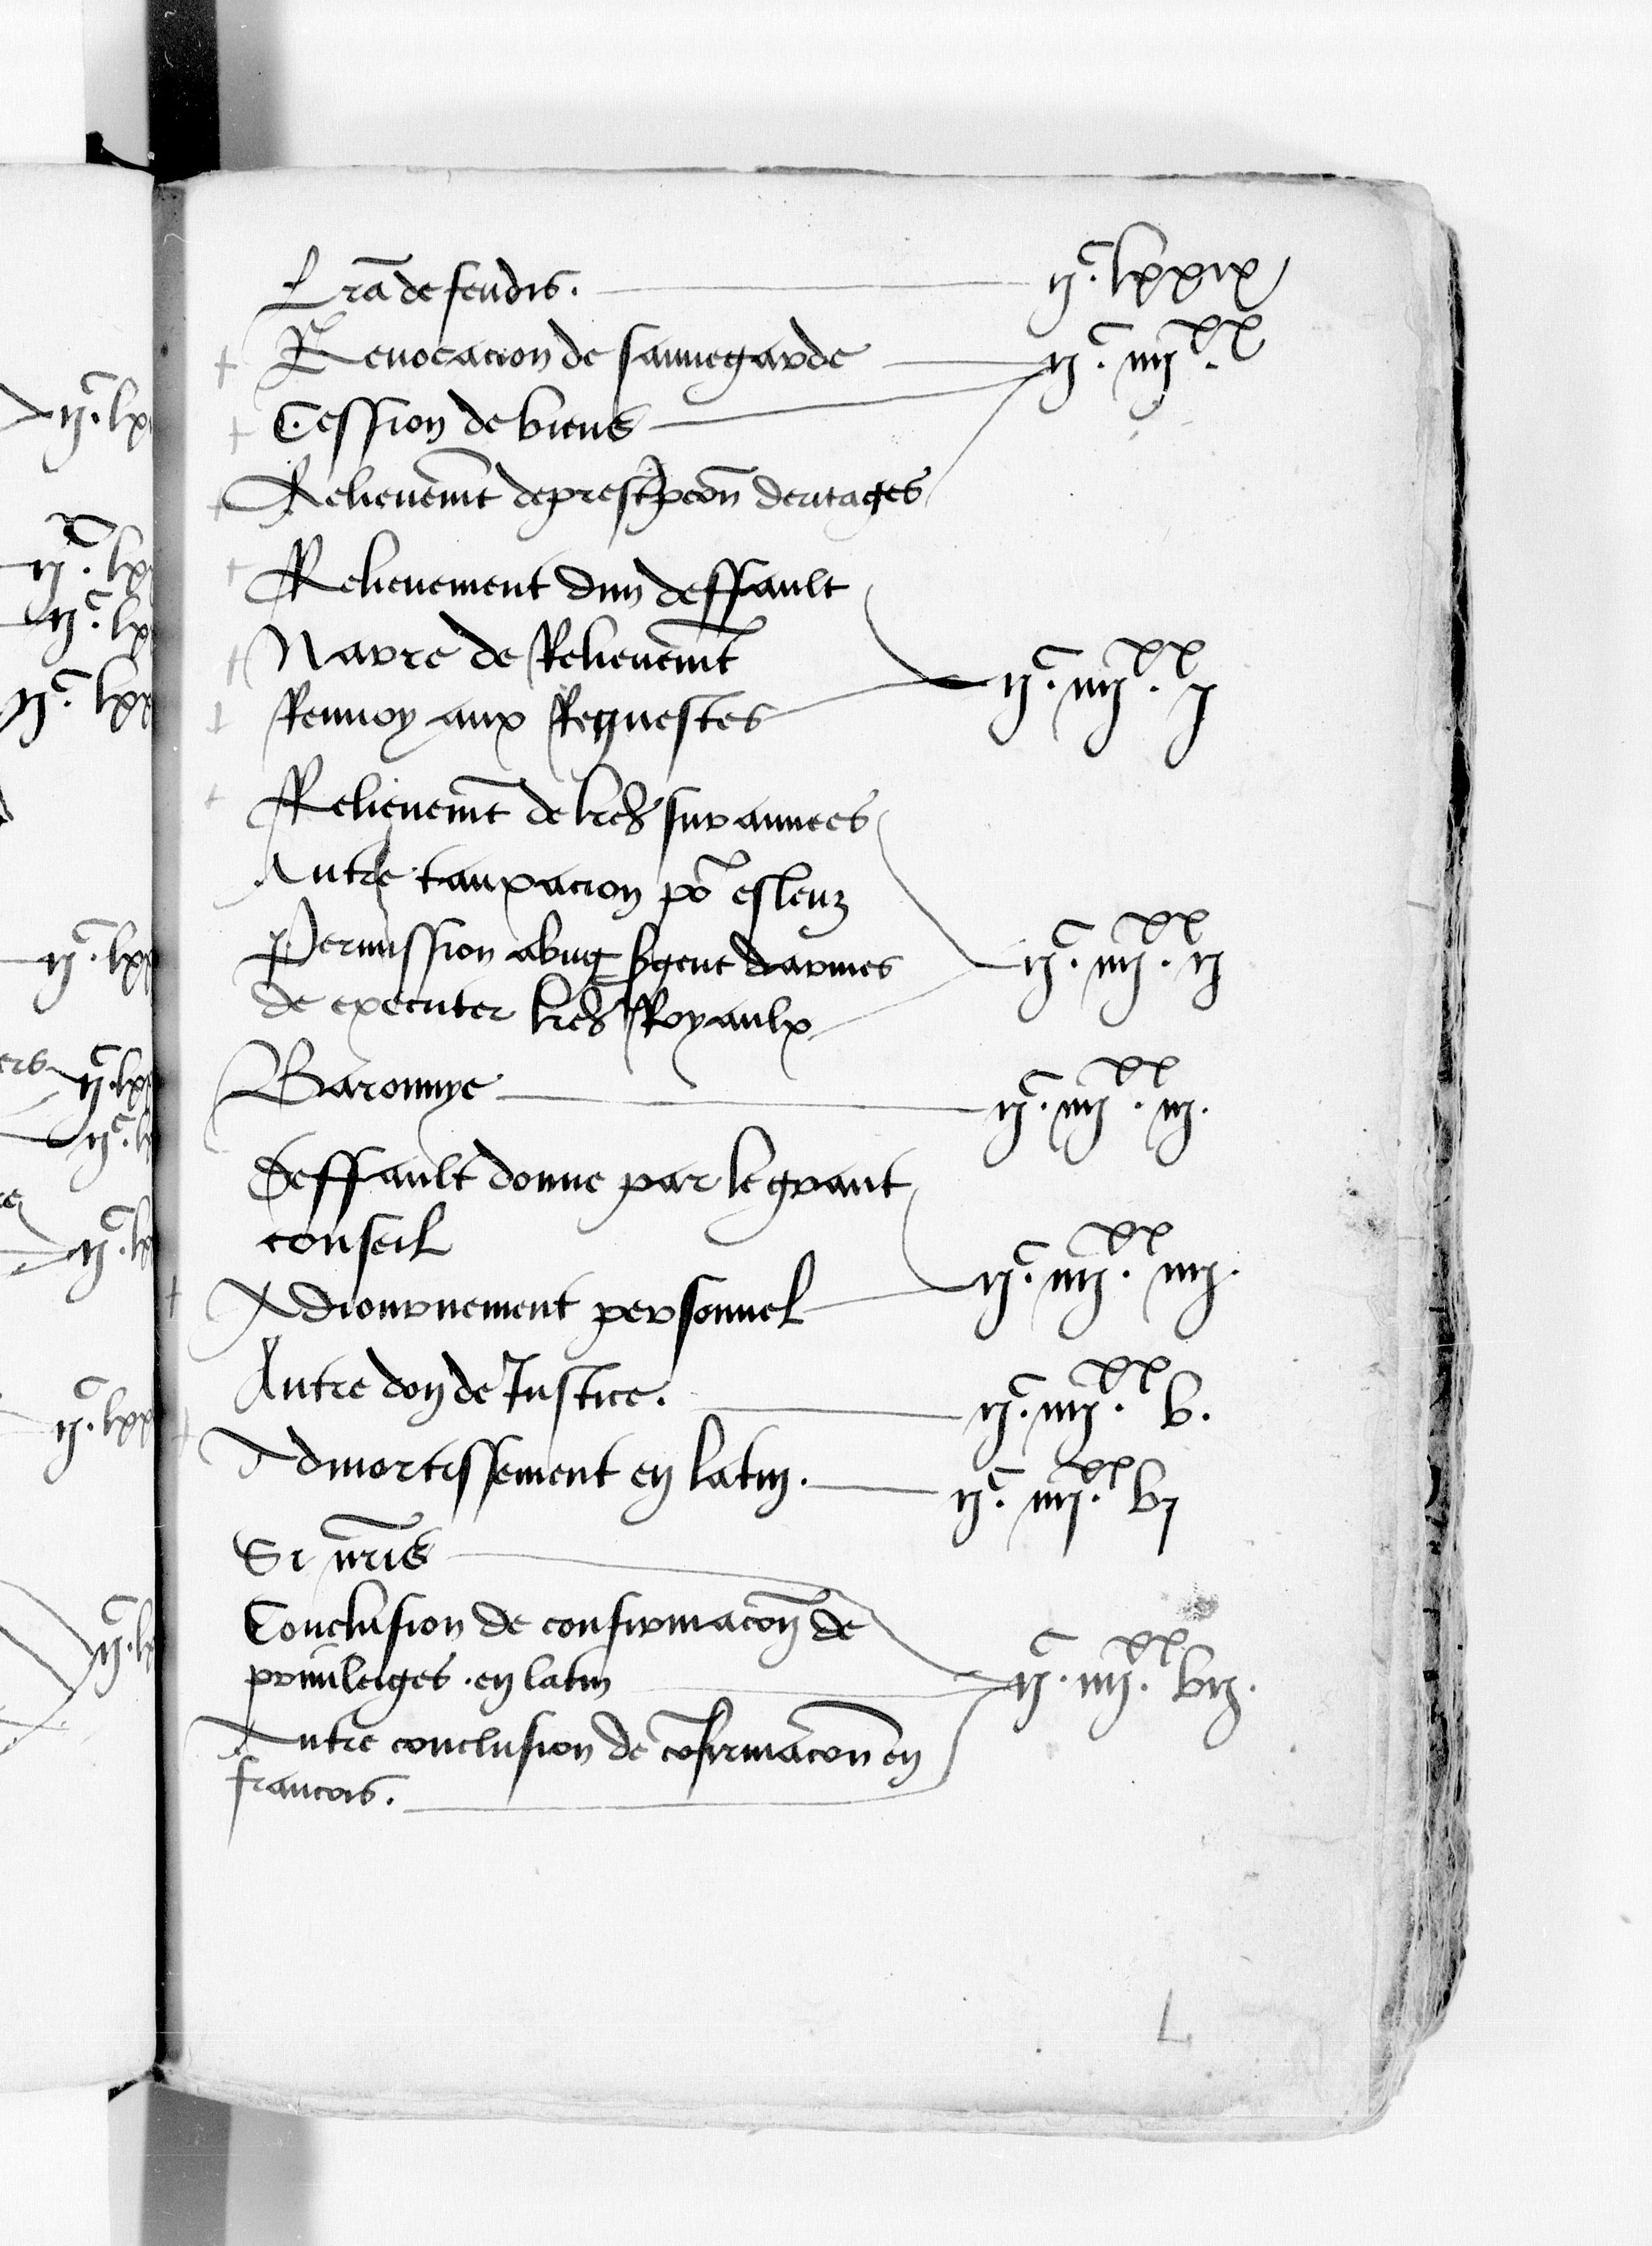 Lrã de feudis. ijᶜ. lxxix
Reuocacion de sauuegarde ijᶜ. iiijˣˣ.
Cession de biens
Relieuemt̃ de prescripcoñ deritages
Relieuement dun deffault
Narre de Relieuemt̃ ijᶜ. iiijˣˣ. j
Renuoy aux Requestes
Relieuemt̃ de lres̃ surannees
Autre tauxacion po᷑ esleuz
Permission a vng sgent darmes ijᶜ. iiijˣˣ. ij
de executer lres̃ Royaulx
Baronnye ijᶜ. iiijˣˣ. iij.
Deffault donne par le grant
conseil
Adiournement personnel ijᶜ. iiijˣˣ. iiij.
Autre don de Justice. ijᶜ. iiijˣˣ. v.
Admortissement en latin. ijᶜ. iiijˣˣ. vj
Si nr̃is
Conclusion de confirmacoñ de
priuileiges. en latin ijᶜ. iiijˣˣ. vij.
Autre conclusion de cõfirmacoñ en
francois.
L